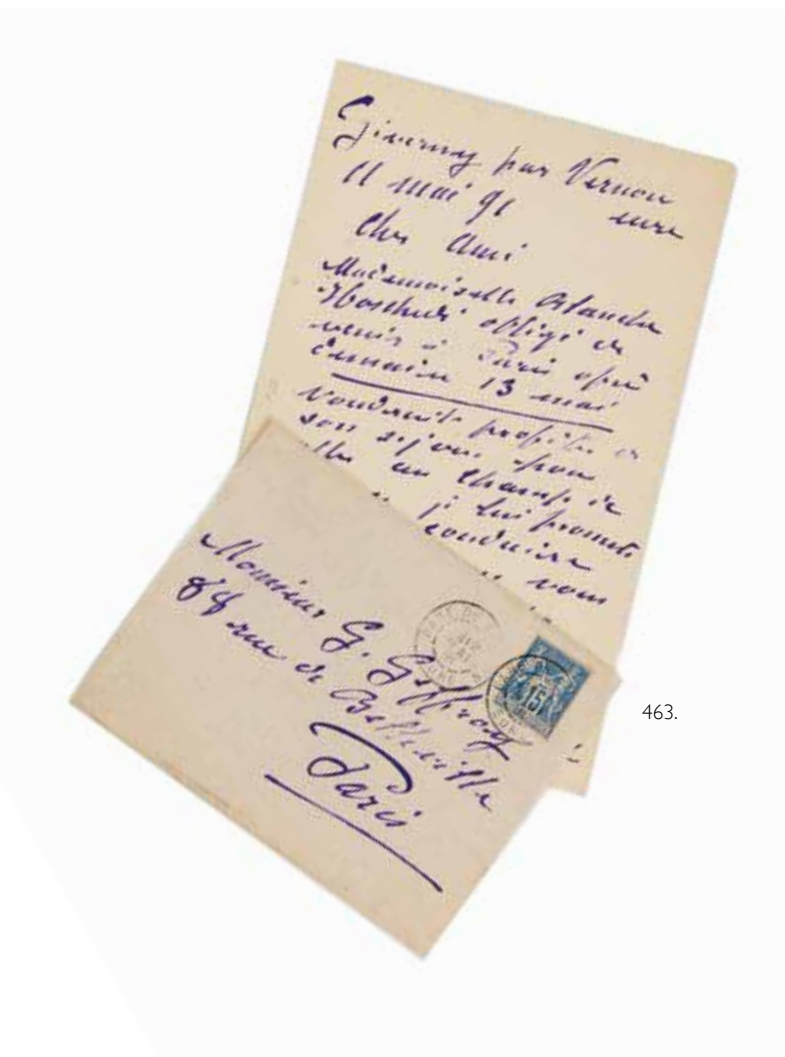 Giverny par Vernon
11 mai 91 eure
Cher Ami
Mademoiselle Blanche
Hoschedé obligé de
venir à Paris après
demain 13 mai
voudrait profiter de
son séjour pour
au Champ de
je lui promets
conduire
vous
Monsieur G. Geffroy
88 rue de Belleville
Paris
15
463.